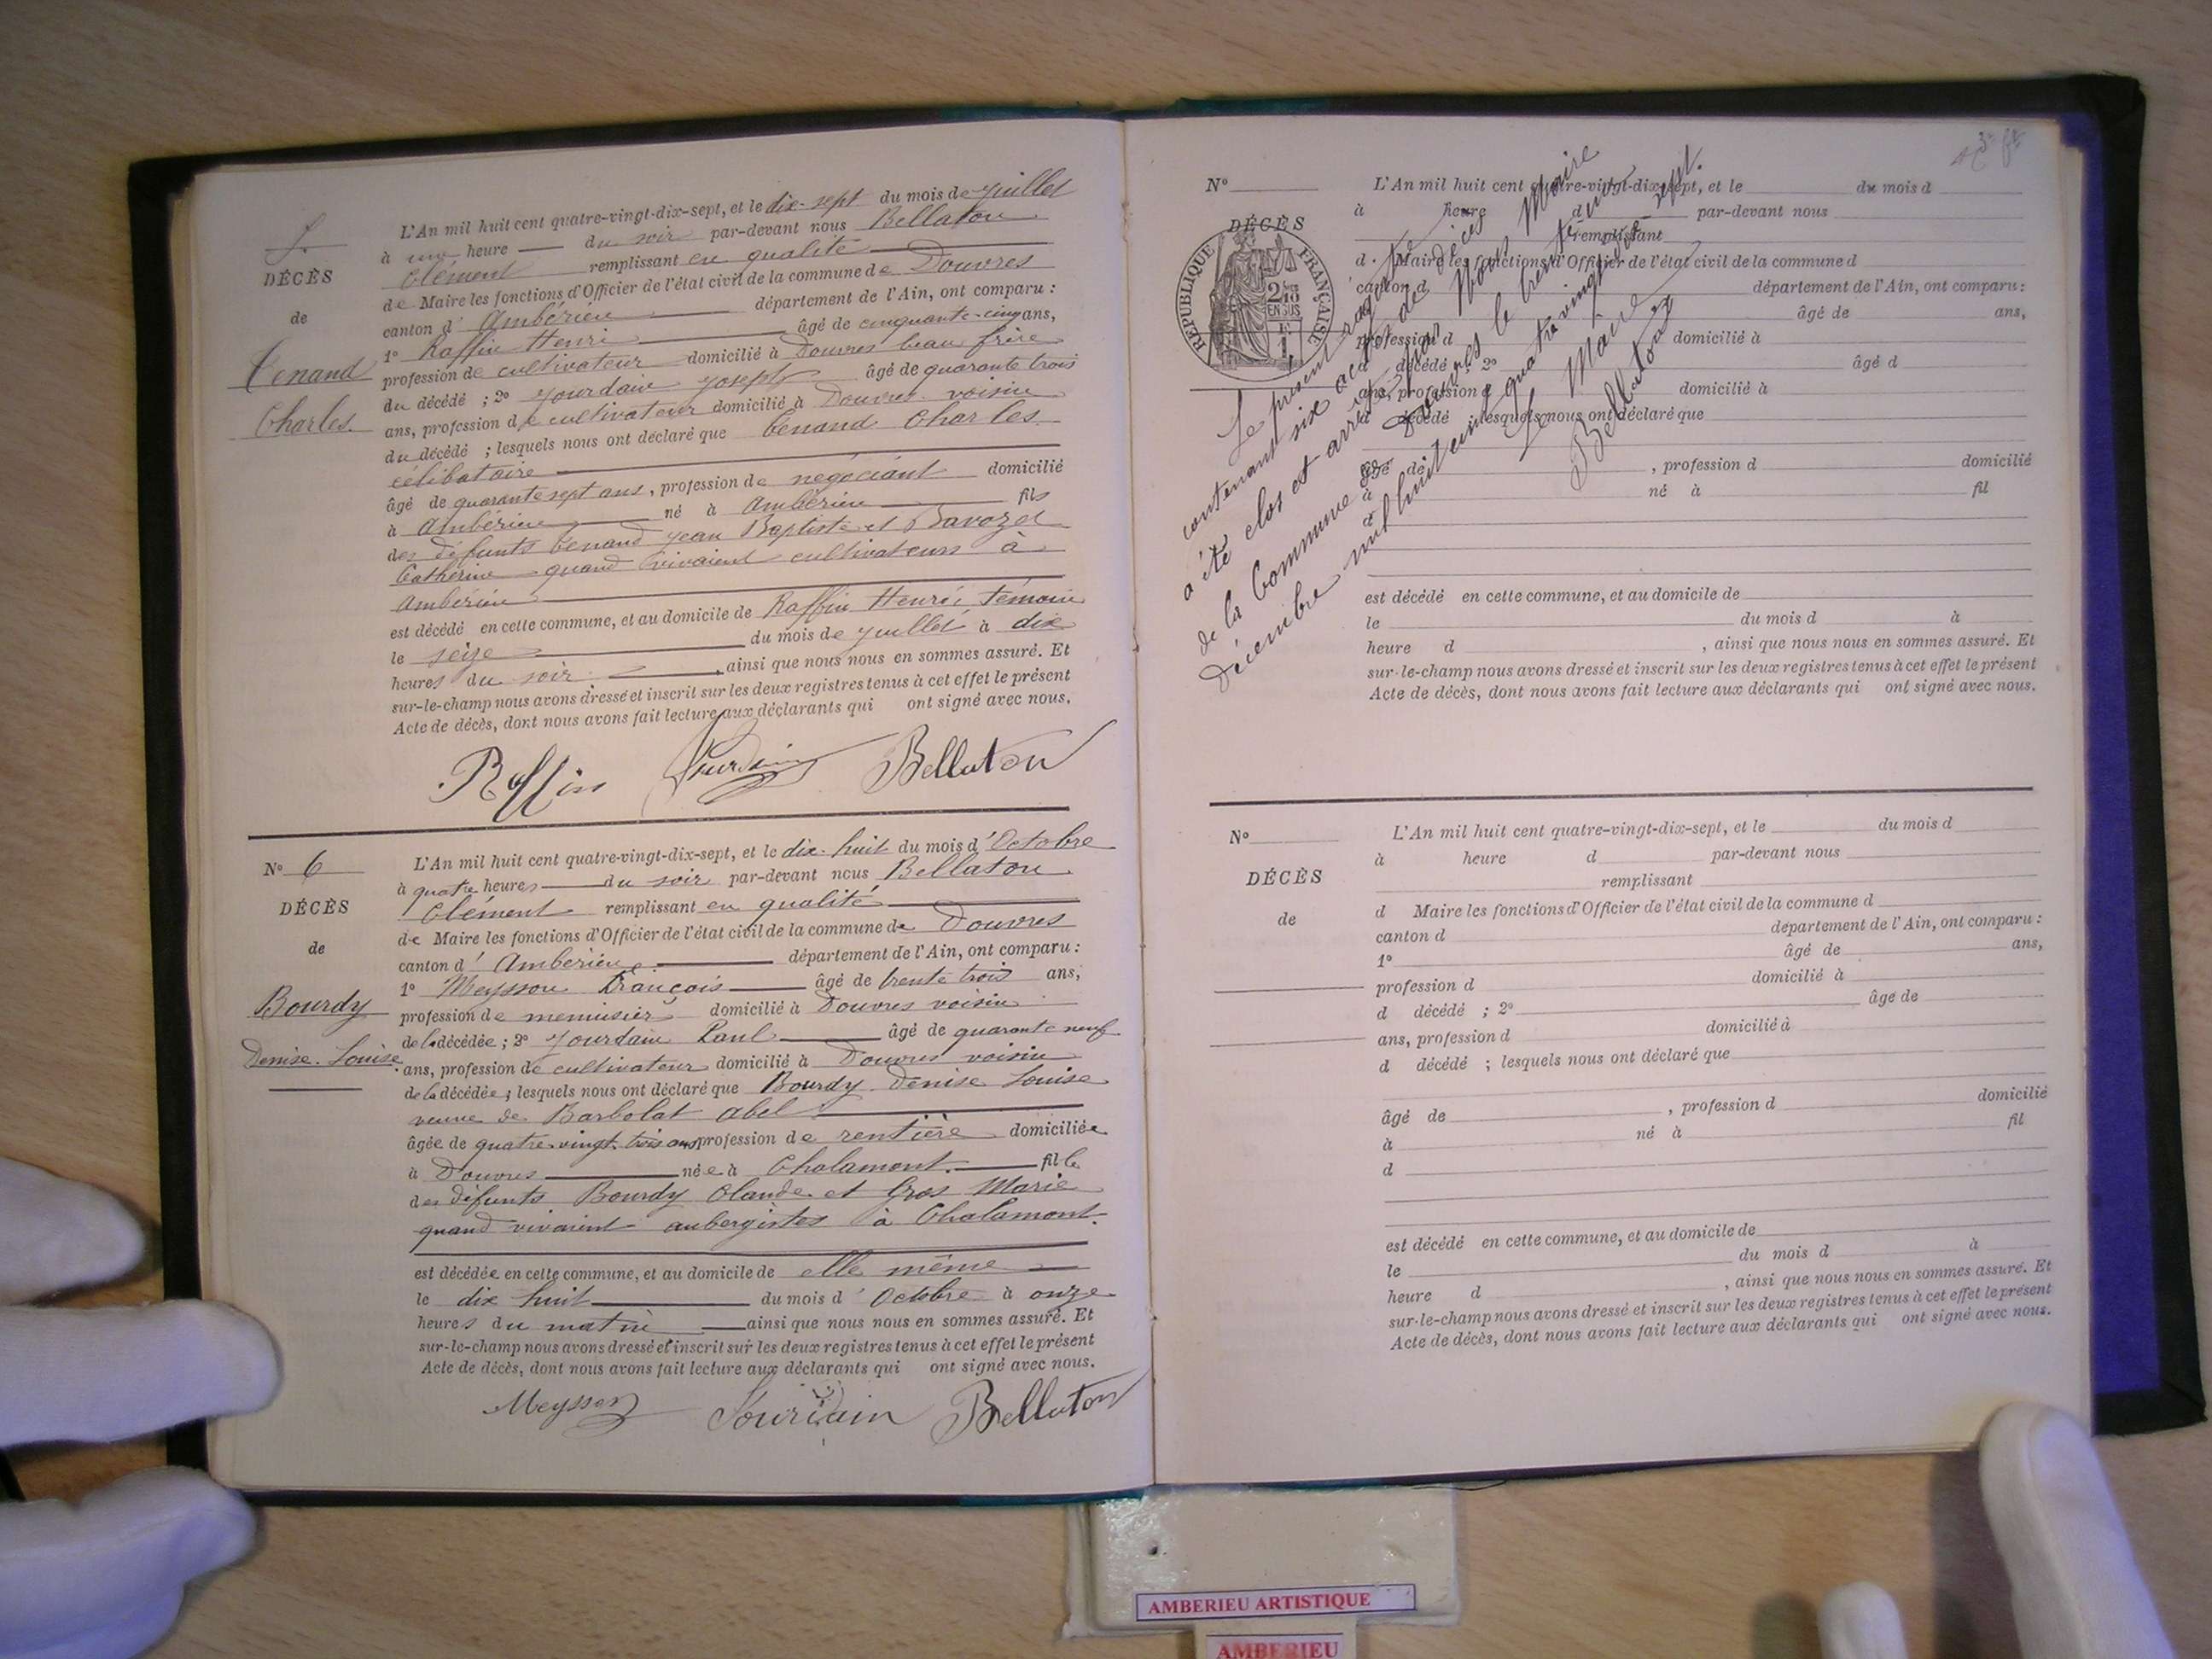 5
DÉCÈS
de
Tenand
Charles.
L'An mil huit cent quatre-vingt-dix-sept, et le dix-sept du mois de juillet
à une heure du soir par-devant nous Bellaton
Clément remplissant en qualité
de Maire les fonctions d'Officier de l'état civil de la commune de Douvres
canton d'Ambérieu département de l'Ain, ont comparu :
1° Raffin Henri âgé de cinquante-cinq ans,
profession de cultivateur domicilié à Douvres beau frère
du décédé ; 2° Jourdain Joseph âgé de quarante trois
ans, profession de cultivateur domicilié à Douvres voisin
du décédé ; lesquels nous ont déclaré que Tenand Charles
célibataire
âgé de quarante sept ans, profession de négociant domicilié
à Ambérieu né à Ambérieu fils
des défunts Tenand Jean Baptiste et Bavozet
Catherine quand vivaient cultivateurs à
Ambérieu
est décédé en cette commune, et au domicile de Raffin Henri, témoin
le seize du mois de juillet à dix
heures du soir, ainsi que nous nous en sommes assuré. Et
sur-le-champ nous avons dressé et inscrit sur les deux registres tenus à cet effet le présent
Acte de décès, dont nous avons fait lecture aux déclarants qui ont signé avec nous.
Raffin Jourdain Bellaton
N° 6
DÉCÈS
de
Bourdy
Denise-Louise.
L'An mil huit cent quatre-vingt-dix-sept, et le dix-huit du mois d'Octobre
à quatre heures du soir par-devant nous Bellaton
Clément remplissant en qualité
de Maire les fonctions d'Officier de l'état civil de la commune de Douvres
canton d'Ambérieu département de l'Ain, ont comparu :
1° Meysson François âgé de trente trois ans,
profession de menuisier domicilié à Douvres voisin
de la décédée ; 2° Jourdain Paul âgé de quarante neuf
ans, profession de cultivateur domicilié à Douvres voisin
de la décédée ; lesquels nous ont déclaré que Bourdy Denise Louise
veuve de Barbolat Abel
âgée de quatre-vingt-trois ans profession de rentière domiciliée
à Douvres née à Chalamont fille
des défunts Bourdy Claude et Gros Marie
quand vivaient aubergistes à Chalamont.
est décédée en cette commune, et au domicile de elle même
le dix huit du mois d'Octobre à onze
heures du matin ainsi que nous nous en sommes assuré. Et
sur-le-champ nous avons dressé et inscrit sur les deux registres tenus à cet effet le présent
Acte de décès, dont nous avons fait lecture aux déclarants qui ont signé avec nous.
Meysson Jourdain Bellaton
N°
DÉCÈS
RÉPUBLIQUE FRANÇAISE
L'An mil huit cent quatre-vingt-dix-sept, et le du mois d
à heure d par-devant nous
remplissant
d Maire les fonctions d'Officier de l'état civil de la commune d
canton d département de l'Ain, ont comparu :
âgé de ans,
profession d domicilié à
d décédé ; 2° âgé d
ans, profession d domicilié à
d décédé ; lesquels nous ont déclaré que
âgé de , profession d domicilié
à né à fil
d
est décédé en cette commune, et au domicile de
le du mois d à
heure d , ainsi que nous nous en sommes assuré. Et
sur-le-champ nous avons dressé et inscrit sur les deux registres tenus à cet effet le présent
Acte de décès, dont nous avons fait lecture aux déclarants qui ont signé avec nous.
Le présent registre
contenant six actes de décès
a été clos et arrêté par Nous Maire
de la Commune de Douvres le trente un
Décembre mil huit cent quatre vingt dix-sept.
Le Maire
Bellaton
N°
DÉCÈS
de
L'An mil huit cent quatre-vingt-dix-sept, et le du mois d
à heure d par-devant nous
remplissant
d Maire les fonctions d'Officier de l'état civil de la commune d
canton d département de l'Ain, ont comparu :
1° âgé de ans,
profession d domicilié à
d décédé ; 2° âgé de
ans, profession d domicilié à
d décédé ; lesquels nous ont déclaré que
âgé de , profession d domicilié
à né à fil
d
est décédé en cette commune, et au domicile de
le du mois d à
heure d , ainsi que nous nous en sommes assuré. Et
sur-le-champ nous avons dressé et inscrit sur les deux registres tenus à cet effet le présent
Acte de décès, dont nous avons fait lecture aux déclarants qui ont signé avec nous.
AMBERIEU ARTISTIQUE
AMBERIEU